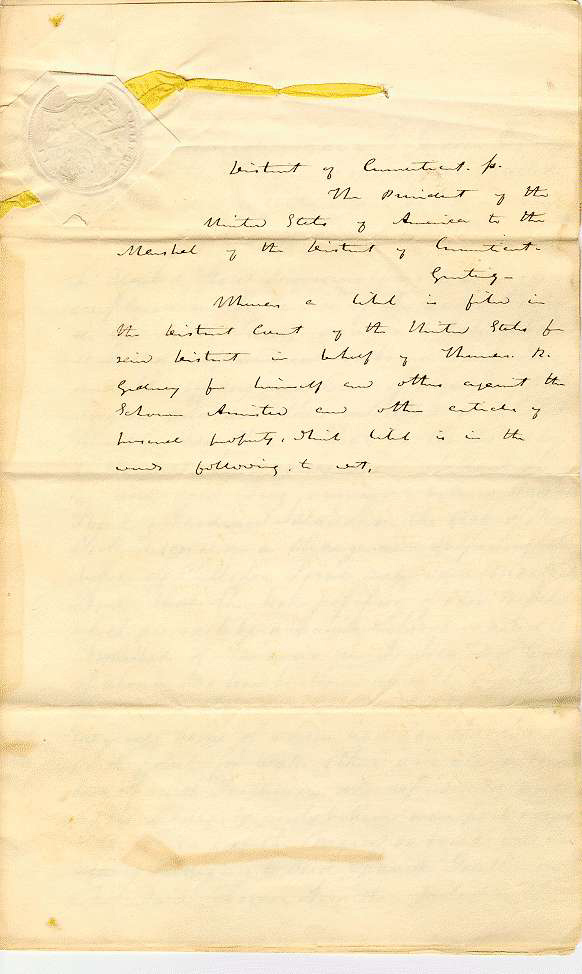 District of Connecticut. ss.
The President of the
United States of America to the
Marshal of the District of Connecticut.
Greeting—
Whereas a libel is filed in
the District Court of the United States for
said District in behalf of Thomas. R.
Gedney for himself and others against the
Schooner Amistad and other articles of
personal property, which libel is in the
words following, to wit,